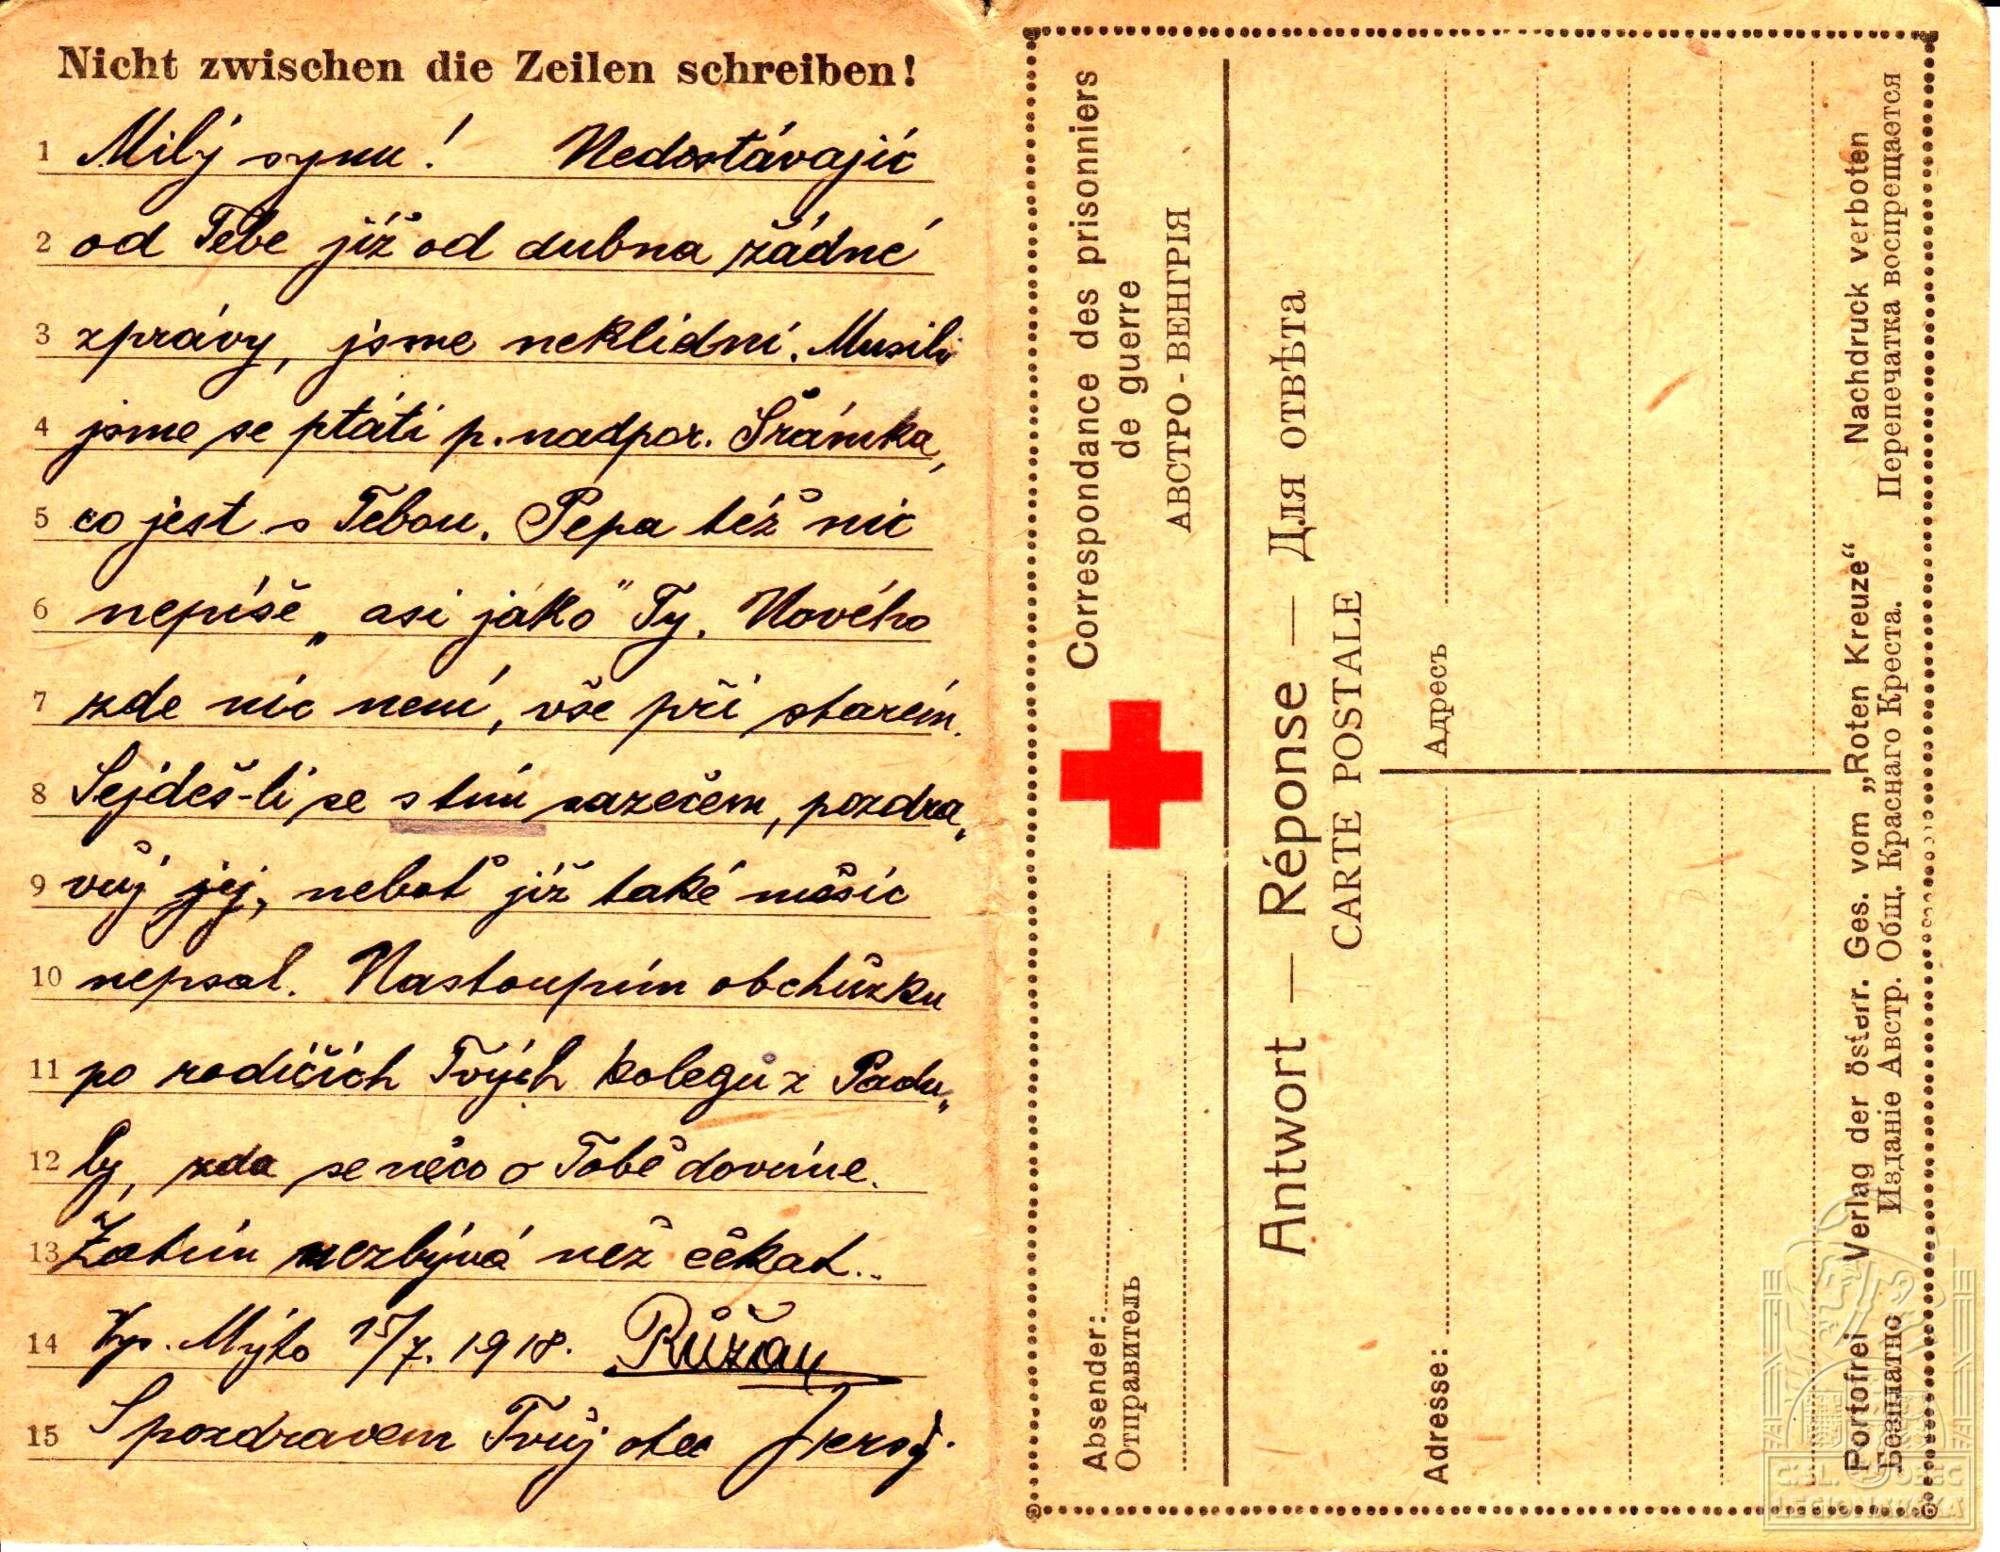 Nicht zwischen die Zeilen schreiben!
1 Milý synu! Nedostávajíc
2 od Tebe již od dubna žádné
3 zprávy, jsme neklidní. Musili
4 jsme se ptáti p. nadpor. Šrámka,
5 co jest s Tebou. Pepa též nic
6 nepíše „asi jako" Ty. Nového
7 zde nic není, vše při starém.
8 Sejdeš-li se s tím zazečem, pozdra„
9 vůj jej, neboť již také měsíc
10 nepsal. Nastoupím obchůzku
11 po rodičích Tvých kolegů z Padu„
12 ly, zda se něco o Tobě dovíme.
13 Zatím nezbývá než čekat..
14 Vys. Mýto 15/7. 1918. Růžau
15 S pozdravem Tvůj otec
Correspondance des prisonniers
de guerre
АВСТРО-ВЕНГРІЯ
Absender:
Отправитель
Antwort — Réponse — Для отвѣта
CARTE POSTALE
Adresse:
Адресъ
Portofrei Verlag der österr. Ges. vom „Roten Kreuze“ Nachdruck verboten
Безплатно Изданіе Австр. Общ. Краснаго Креста. Перепечатка воспрещается
ČSL. OBEC
LEGIONÁŘSKÁ